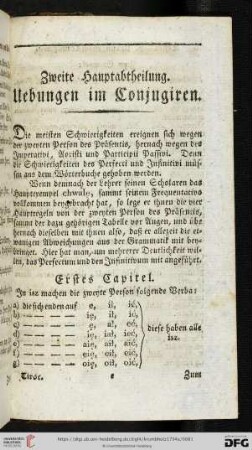 Zweite Hauptabtheilung.
Uebungen im Conjugiren.
Die meisten Schwierigkeiten ereignen sich wegen
der zweyten Person des Präsentis, hernach wegen des
Imperativi, Aoristi und Participii Passivi. Denn
die Schwierigkeiten des Perfecti und Infinitivi müs-
sen aus dem Wörterbuche gehoben werden.
Wenn demnach der Lehrer seinen Scholaren das
Hauptexempel chwalo, sammt seinem Frequentativo
vollkommen beygebracht hat, so lege er ihnen die vier
Hauptregeln von der zweyten Person des Präsentis,
sammt der dazu gehörigen Tabelle vor Augen, und übe
hernach dieselben mit ihnen also, daß er allezeit die et-
wanigen Abweichungen aus der Grammatik mit bey-
bringe. Hier hat man, um mehrerer Deutlichkeit wol-
len, das Perfectum und den Infinitivum mit angeführt.
Erstes Capitel.
In isz machen die zweyte Person folgende Verba:
a) die sich enden auf
b)
c)
d)
e)
f)
g)
diese haben alle
isz.
Tiroc.
Zum